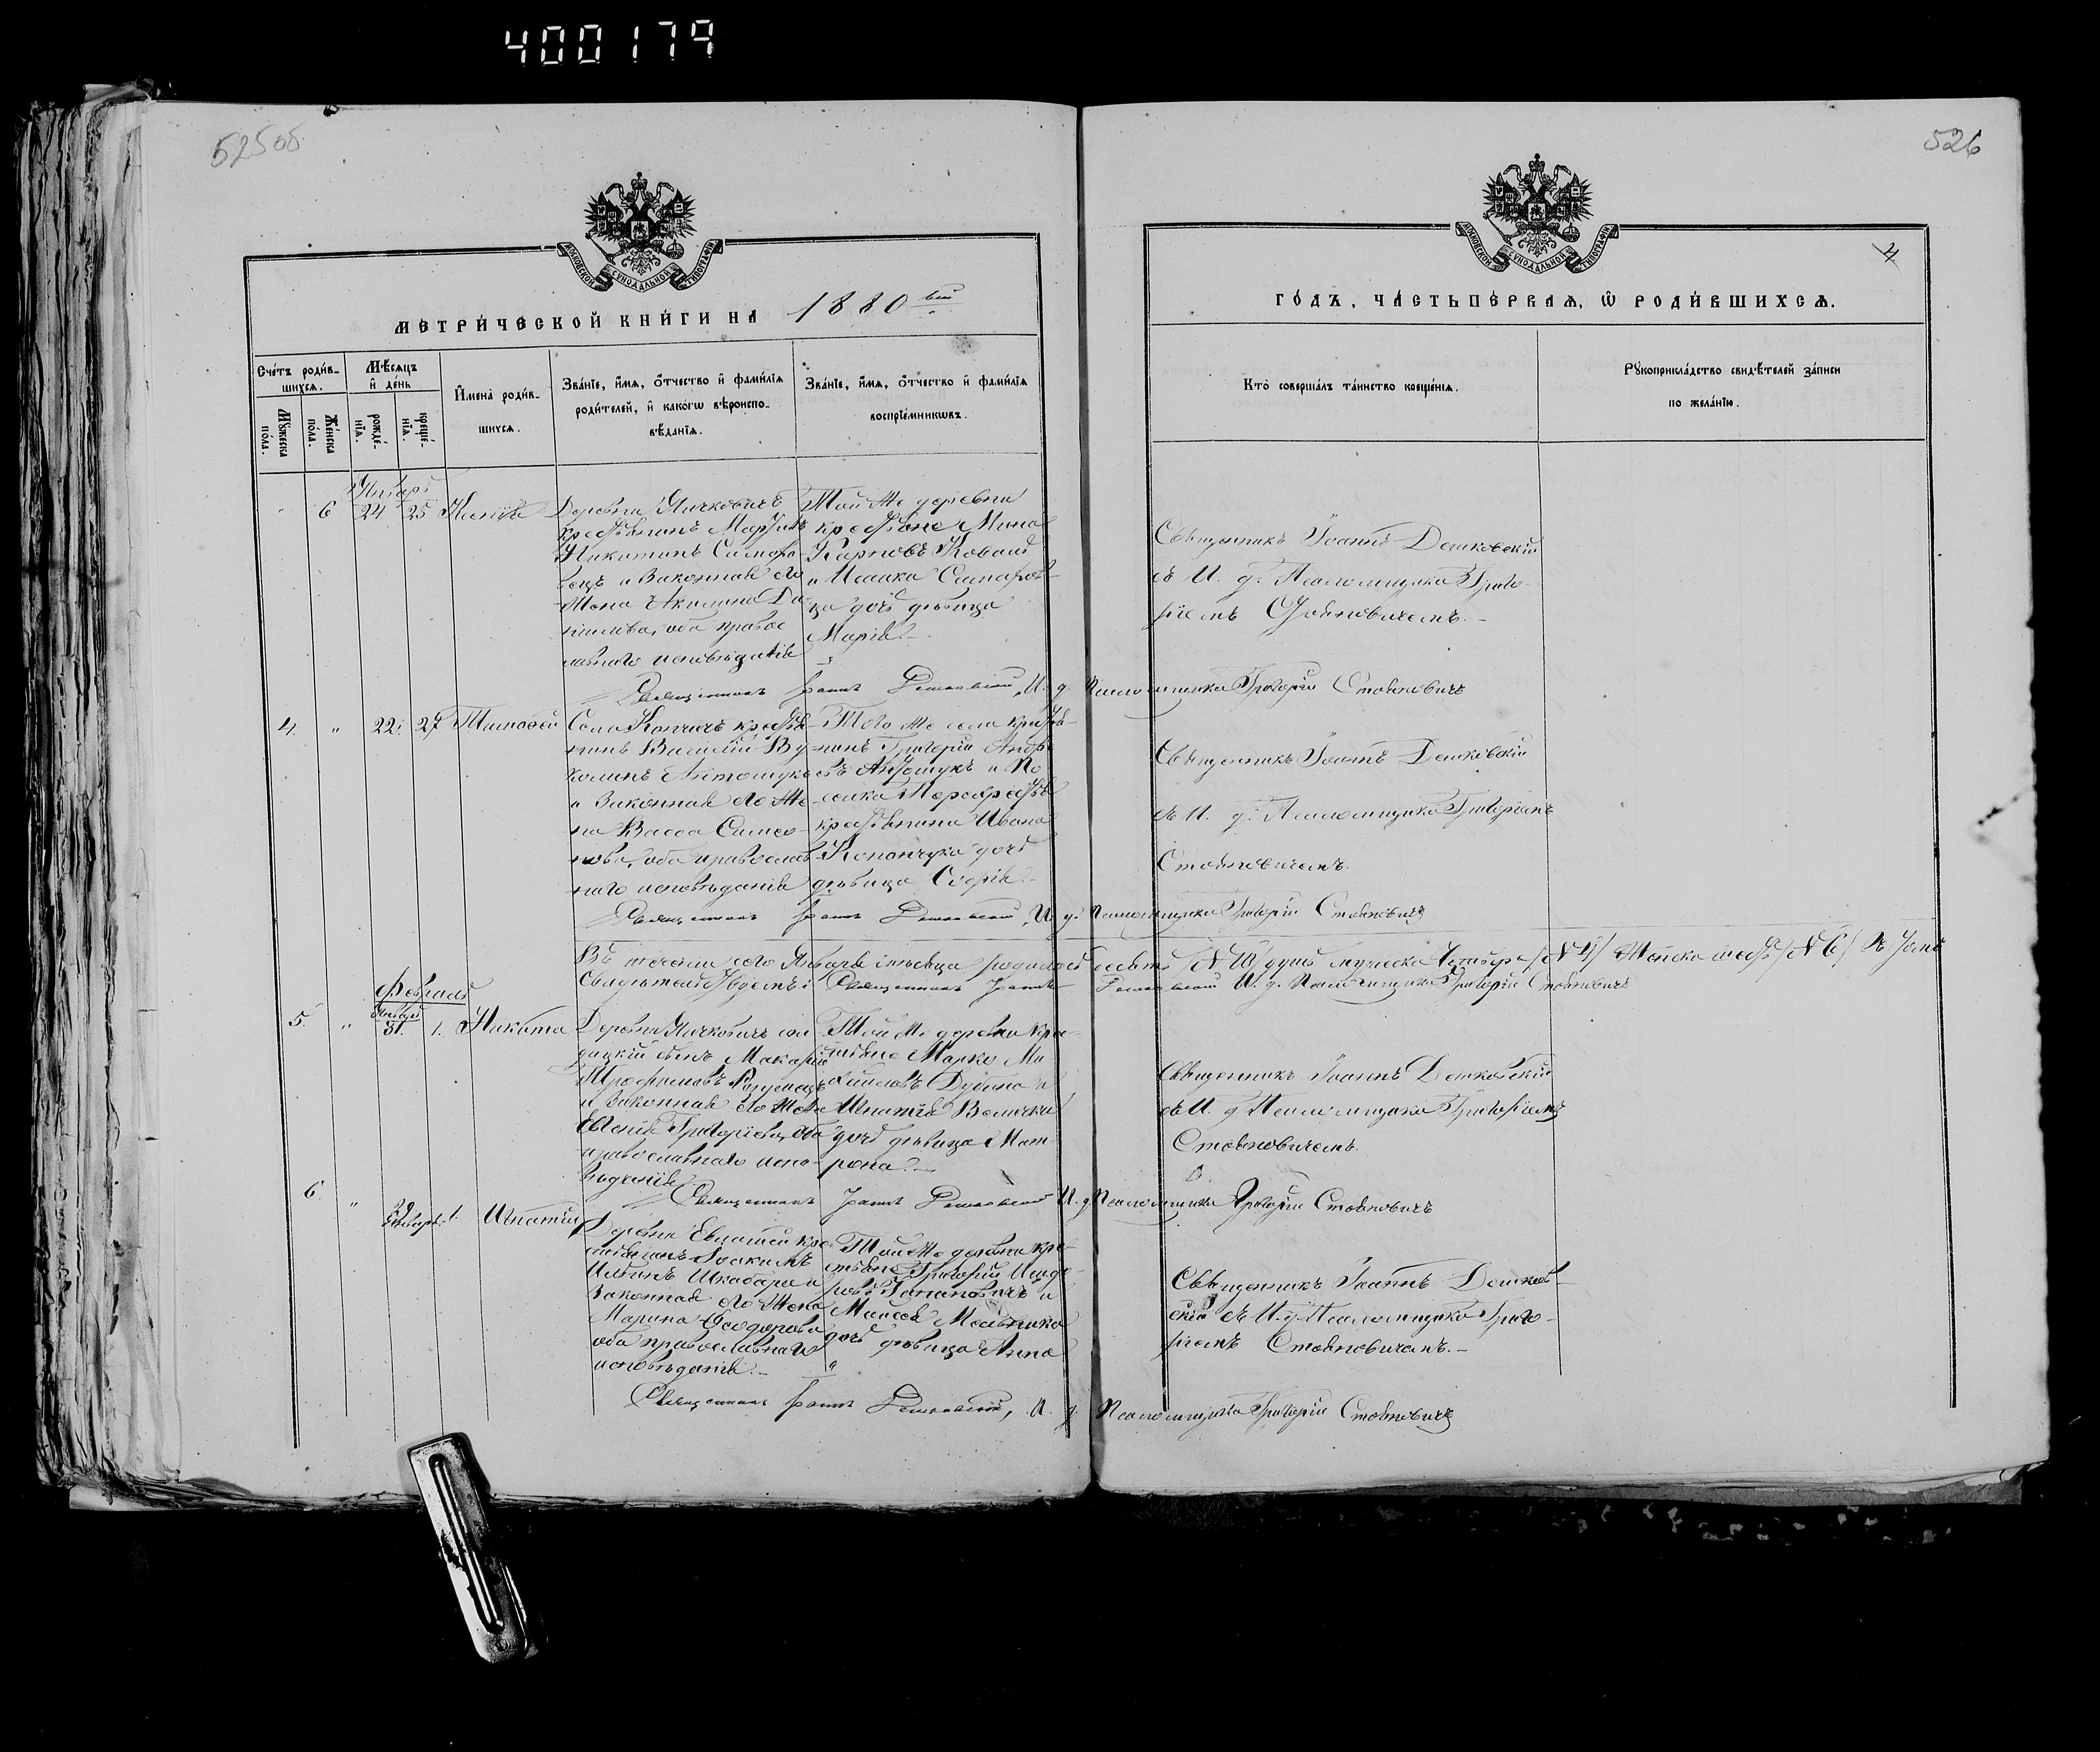 400179
525об
526
МОСКОВСКОЙ СѴНОДАЛЬНОЙ ТИПОГРАФІИ
МОСКОВСКОЙ СѴНОДАЛЬНОЙ ТИПОГРАФІИ
4
МЕТРИ́ЧЕСКОЙ КНИ́ГИ НА 1880 ый
ГО́ДЪ, ЧА́СТЬ ПЕ́РВАѦ, Ѡ РОДИ́ВШИХСѦ.
Сче́тъ роди́в-
шихсѧ.
Мꙋ́жеска
по́ла.
Же́нска
по́ла.
Мѣ́сѧцъ
и҆ де́нь
рожде́-
нїѧ.
креще́-
нїѧ.
И҆мена̀ роди́в-
шихсѧ.
Зва́нїе, и҆́мѧ, ѻ҆́тчество и҆ фами́лїѧ
роди́телей, и҆ како́гѡ вѣроиспо-
вѣ́данїѧ.
Зва́нїе, и҆́мѧ, ѻ҆́тчество и҆ фами́лїѧ
воспрїе́мникѡвъ.
Кто̀ соверша́лъ та́инство креще́нїѧ.
Рꙋкоприкла́дство свидѣ́телей за́писи
по жела́нїю.
Январь
6 24 25 Ксенія
Деревни Ячковичъ
крестьянинъ Мартинъ
Никитинъ
и законная его
жена Акилина Да-
нилова, оба правос
лавнаго исповѣданія
Той же деревни
крестьяне Мина
Карповъ Коваль
и
дочь дѣвица
Марія.-
Священникъ Іоаннъ Дешковскій
съ И. д. Псаломщика Григо-
ріемъ Стояновичемъ.-
Священникъ Іоаннъ Дешковскій, И. д. Псаломщика Григорій Стояновичъ
4. " 22. 27 Тимофей
Села Копчичъ крестья-
нинъ Василій Ву-
коловъ Антошукъ
и законная его же-
на Васса Симео-
нова, оба православ-
наго исповѣданія
Того же села крестья-
нинъ Григорій Андре
евъ Антошукъ и
крестьянина Ивана
Конончука дочь
дѣвица Софія.-
Священникъ Іоаннъ Дешковскій
съ И. д. Псаломщика Григоріемъ
Стояновичемъ.
Священникъ Іоаннъ Дешковскій, И. д. Псаломщика Григорій Стояновичъ
Въ теченіи сего Января мѣсяца родилось десять /№ 10/ душъ мужеска четыре /№ 4/ женска шесть /№ 6/ въ чемъ
Свидѣтельствуемъ: Священникъ Іоаннъ Дешковскій И. д. Псаломщика Григорій Стояновичъ
Февраль
Январь
5. " 31. 1. Никита
Деревни Ячковичъ сол
датскій сынъ Макарій
Трофимовъ
и законная его жена
Евгенія Григоріева, оба
православнаго испо-
вѣданія
Той же деревни кре-
стьяне Марко Ми
хайловъ Дубина и
Игнатія Велички
дочь дѣвица Мат-
рона.-
Священникъ Іоаннъ Дешковскій
съ И. д. Псаломщика Григоріемъ
Стояновичемъ.
Священникъ Іоаннъ Дешковскій И. д. Псаломщика Григорій Стояновичъ
6. " 29 Января 1. Игнатій
Деревни кре-
стьянинъ Іоакимъ
Ильинъ Шкабара и
законная его жена
Марина Ѳеодорова
оба православнаго
исповѣданія.-
Той же деревни кре-
стьяне Григорій Исидо-
ровъ и
Мельника
дочь дѣвица Анна
Священникъ Іоаннъ Дешков-
скій съ И. д. Псаломщика Григо-
ріемъ Стояновичемъ.-
Священникъ Іоаннъ Дешковскій, И. д. Псаломщика Григорій Стояновичъ